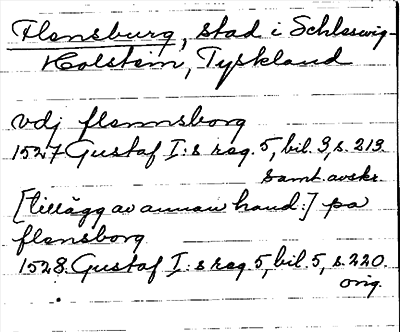 Flensburg, stad i Schleswig-
Holstein, Tyskland
vdj flennsborg
1527 Gustaf I:s reg. 5, bil. 3, s. 213.
samt. avskr.
[tillägg av annan hand:] pa
flensborg
1528. Gustaf I:s reg. 5, bil. 5, s. 220.
orig.